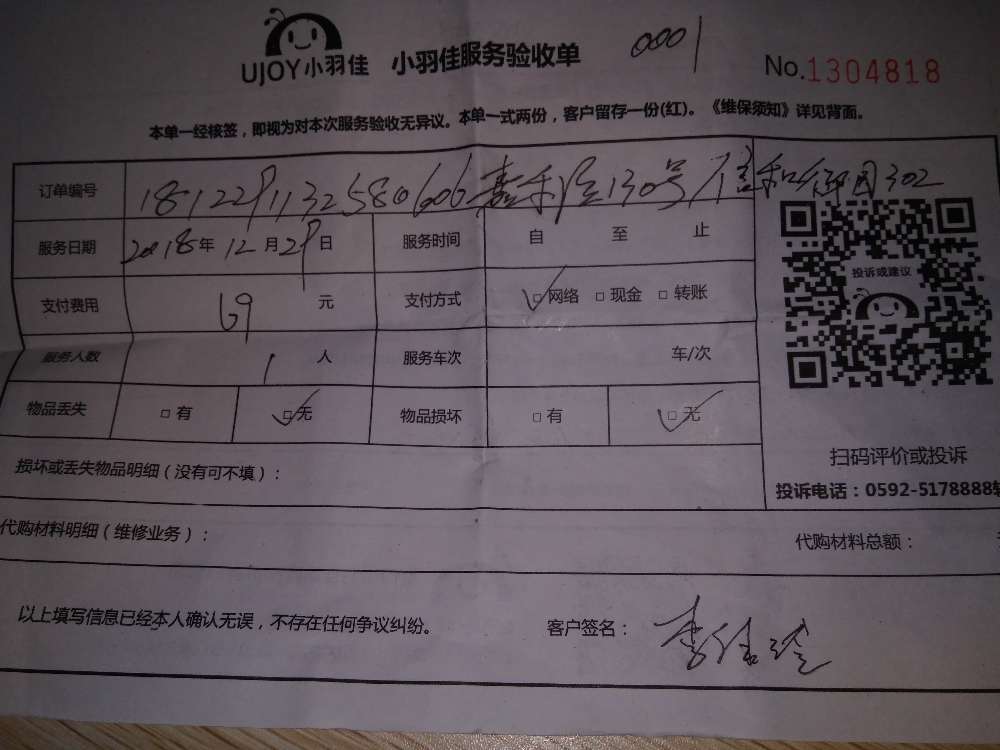 UJOY小羽佳 小羽佳服务验收单 0001 No.1304818
本单一经核签，即视为对本次服务验收无异议。本单一式两份，客户留存一份(红)。《维保须知》详见背面。
订单编号 1812291132580606 嘉禾 130号 信和 302
服务日期 2018年12月29日 服务时间 自 至 止
投诉或建议
支付费用 69 元 支付方式 ☑网络 □现金 □转账
服务人数 1 人 服务车次 车/次
物品丢失 □有 ☑无 物品损坏 □有 ☑无
扫码评价或投诉
损坏或丢失物品明细（没有可不填）：
投诉电话：0592-5178888转
代购材料明细（维修业务）： 代购材料总额：
以上填写信息已经本人确认无误，不存在任何争议纠纷。 客户签名： 李佳